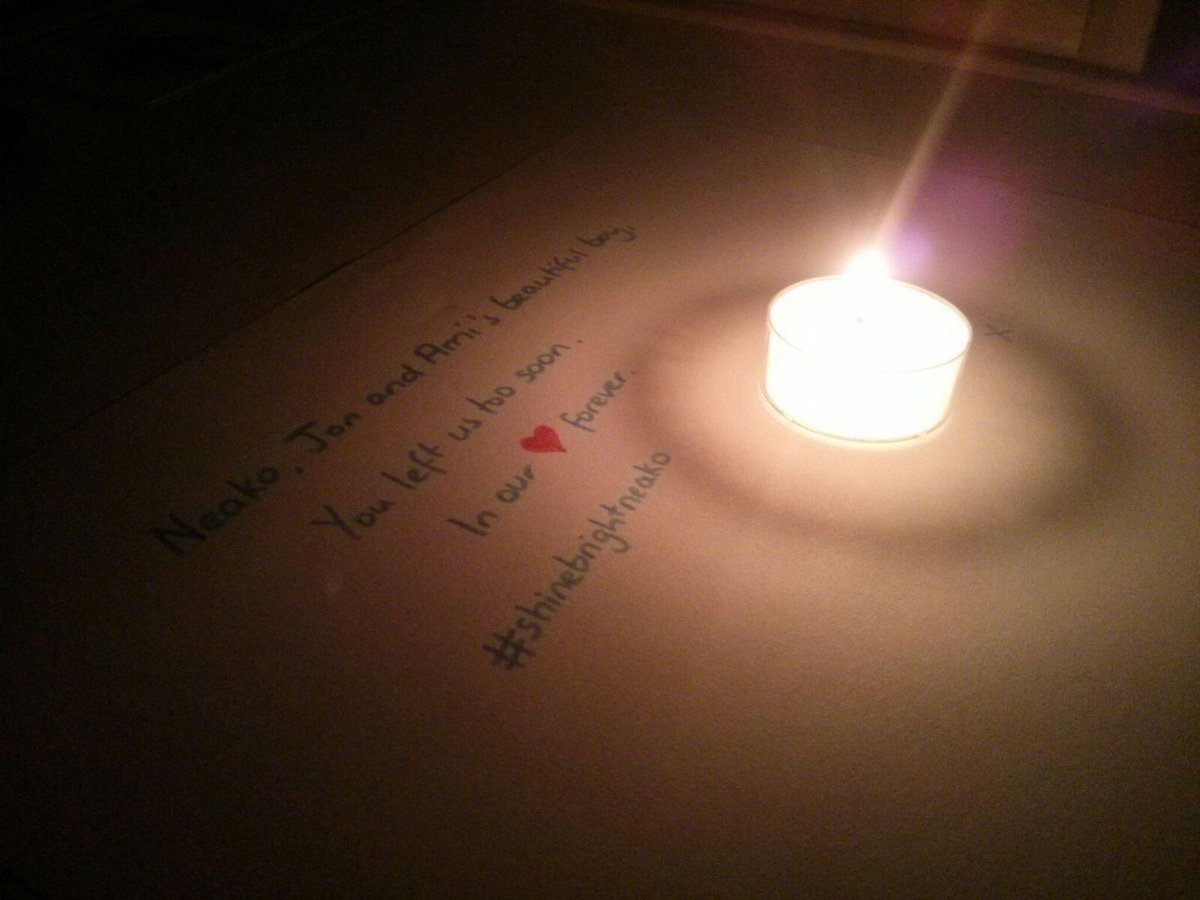 Neako. Jon and Ami's beautiful boy.
You left us too soon.
In our ♥ forever.
#shinebrightneako
x